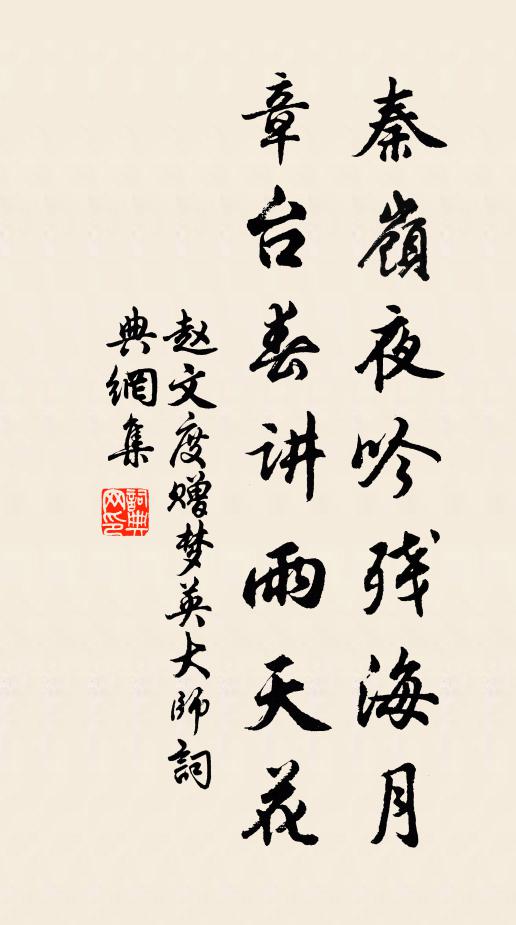 秦嶺夜吟残海月
章台春讲雨天花
赵文度赠梦英大师詞
典網集
詞典
网印